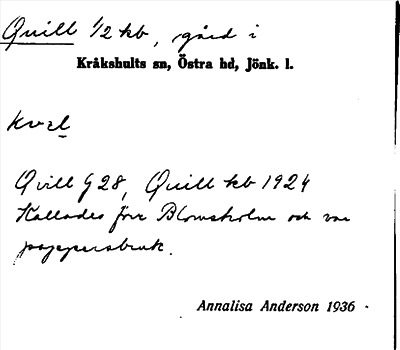 Quill 1/2 kb, gård i
Kråkshults sn, Östra hd, Jönk. l.
Qvill G 28, Quill kb 1924
Kallades förr Blomsholm och var
pappersbruk.
Annalisa Anderson 1936